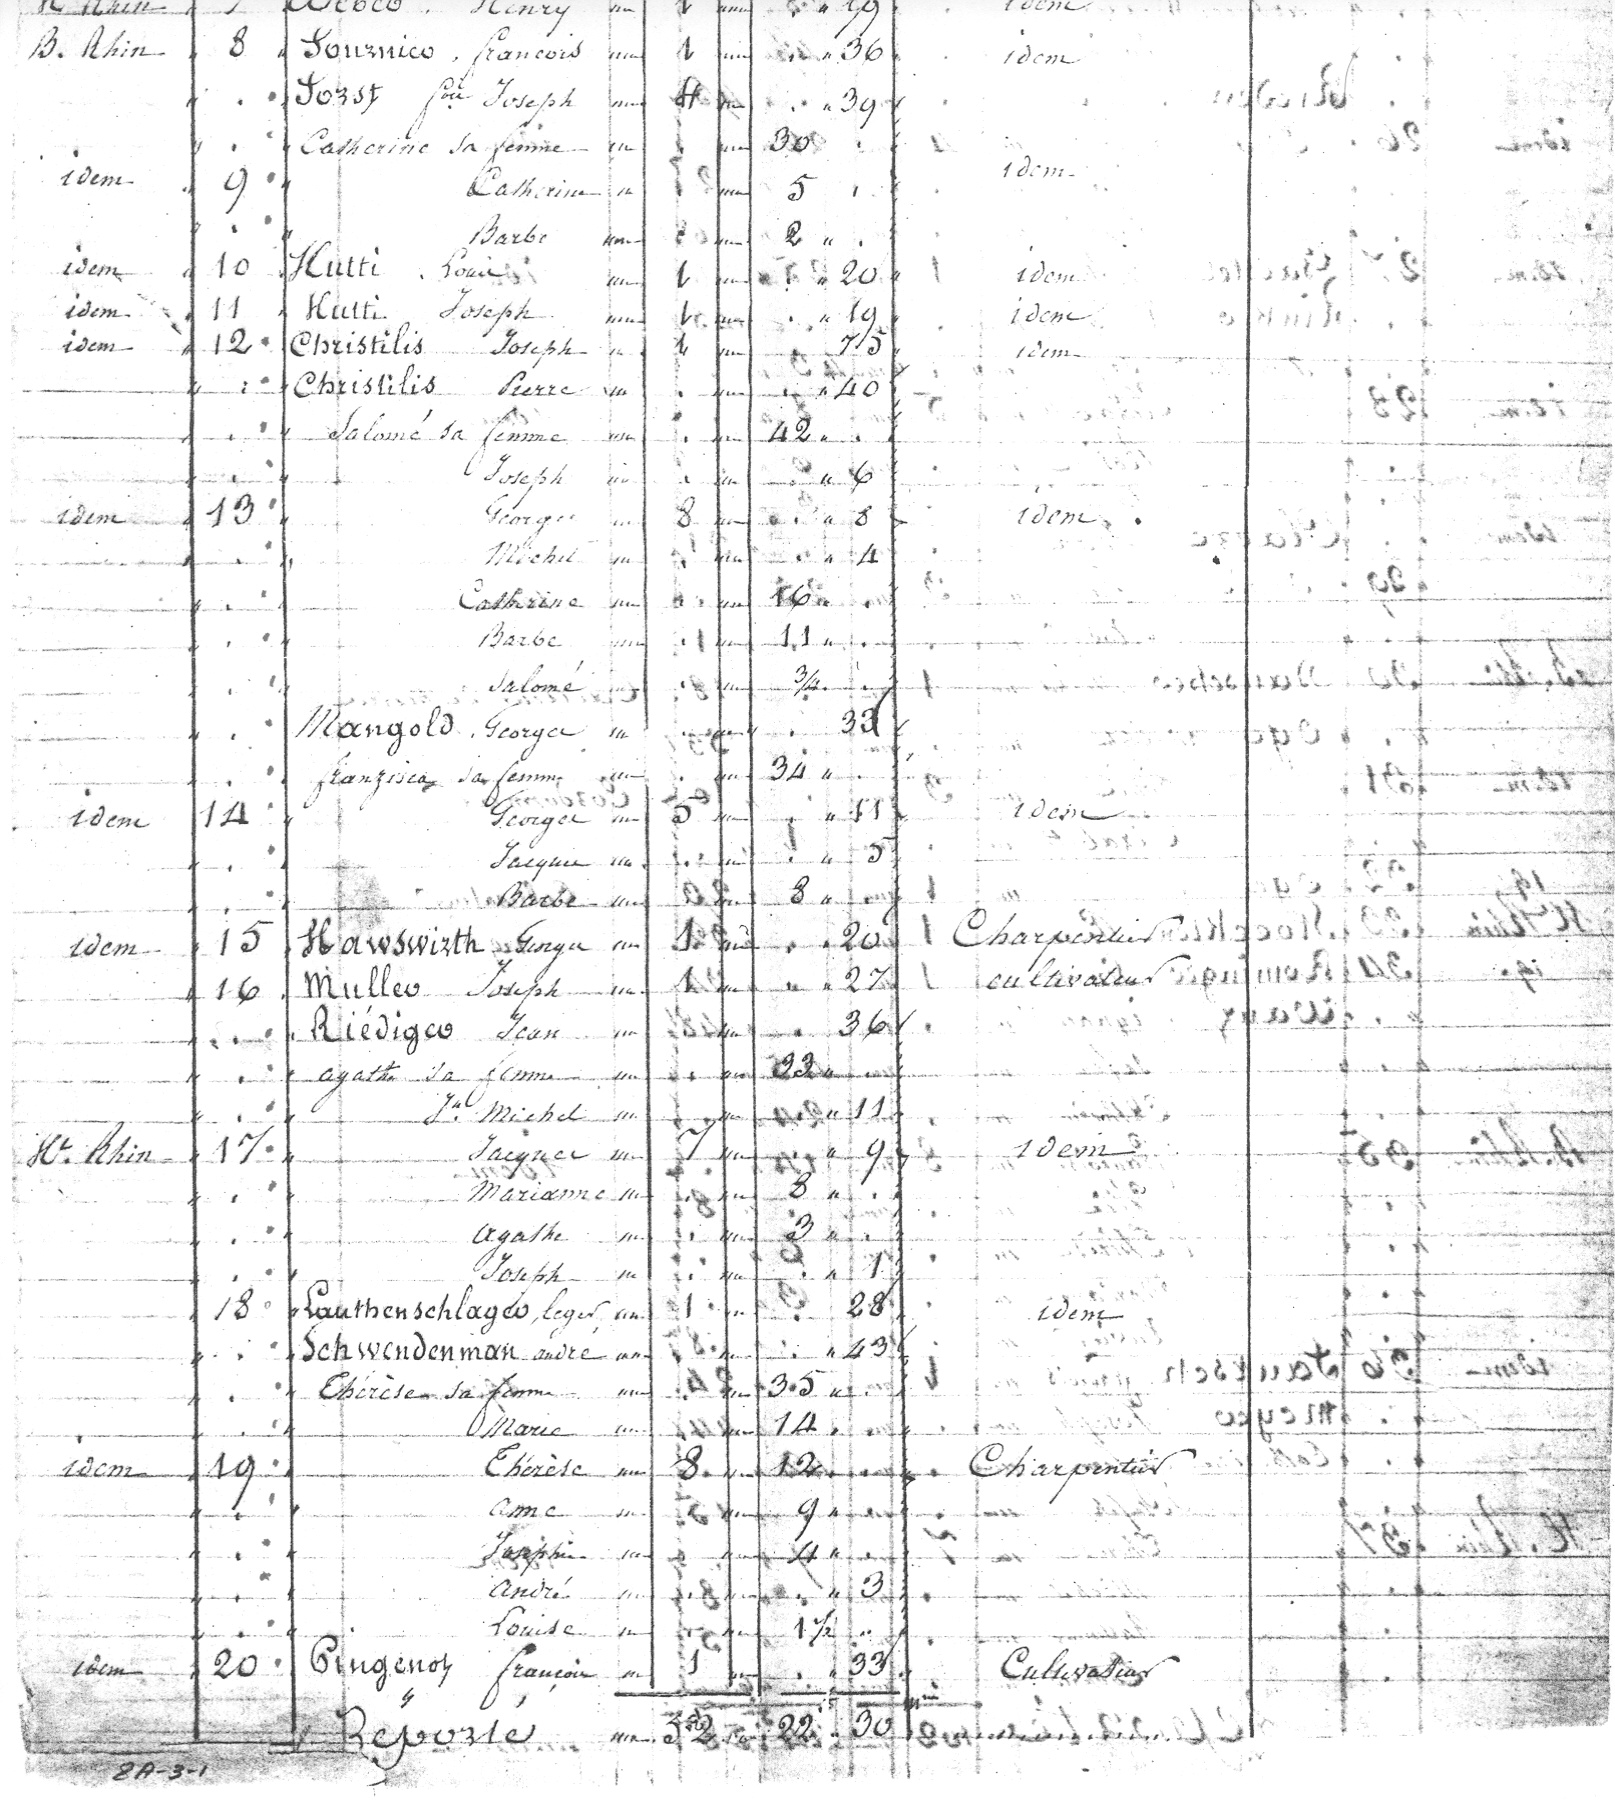 Ht Rhin 7 Weber Henry 1 19 idem
B. Rhin 8 Tournier francois 1 36 idem
Forst fçois Joseph 4 39
Catherine sa femme 30
idem 9 Catherine 5 idem
Barbe 2
idem 10 Hutti Louis 1 20 idem
idem 11 Hutti Joseph 1 19 idem
idem 12 Christilis Joseph 1 75 idem
Christilis Pierre 40
Salomé sa femme 42
Joseph 6
idem 13 George 8 8 idem
Michel 4
Catherine 16
Barbe 11
Salomé 3/4
Mangold George 33
franzisca sa femme 34
idem 14 George 5 11 idem
Jacque 5
Barbe 8
idem 15 Hawswirth George 1 20 Charpentier
16 Muller Joseph 1 27 cultivateur
Riédiger Jean 36
agathe sa femme 33
Jn Michel 11
Ht. Rhin 17 Jacques 7 9 idem
Marianne 8
Agathe 3
Joseph 1
18 Lauthenschlager, leger 1 28 idem
Schwendenman andré 43
Thérèse sa femme 35
Marie 14
idem 19 Thérèse 8 12 Charpentier
anne 9
Josephine 4
André 3
Louise 1 1/2
idem 20 Pingenot françois 1 33 Cultivateur
Reporté 52 22 30
8A-3-1